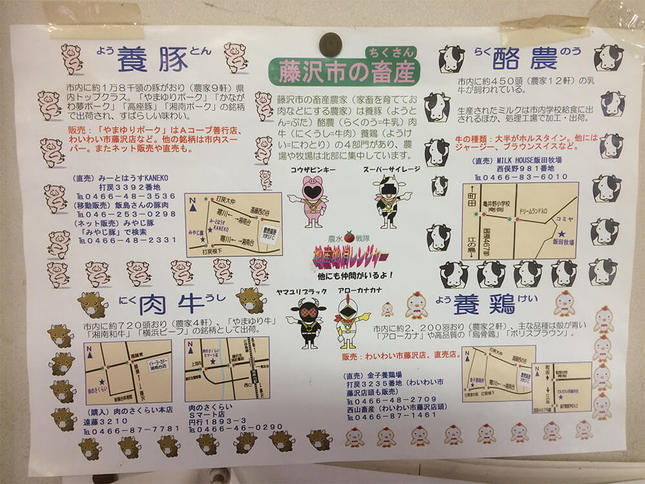 よう 養豚 とん
市内に約1万8千頭の豚がおり（農家9軒）県
内トップクラス。「やまゆりポーク」「かなが
わ夢ポーク」「高座豚」「湘南ポーク」の銘柄
で出荷され、すばらしい味わい。
販売：「やまゆりポーク」はAコープ善行店、
わいわい市藤沢店など。他の銘柄は市内スー
パー。またネット販売や直売も。
（直売）みーとはうすKANEKO
打戻3392番地
℡0466-48-3536
（移動販売）飯島さんの豚肉
℡046-253-0298
（ネット販売）みやじ豚
「みやじ豚」で検索
℡0466-48-2331
ちくさん
藤沢市の畜産
藤沢市の畜産農家（家畜を育ててお
肉などにする農家）は養豚（ようと
ん=ぶた）酪農（らくのう=牛乳）肉
牛（にくうし=牛肉）養鶏（ようけ
い=にわとり）の4部門があり、農
場や牧場は北部に集中しています。
コウザピンキー
スーパーサイレージ
農水 戦隊
他にも仲間がいるよ！
ヤマユリブラック
アローカナカナ
らく 酪農 のう
市内に約450頭（農家12軒）の乳
牛が飼われている。
生産されたミルクは市内学校給食に出
されるほか、処理工場で加工・出荷。
牛の種類：大半がホルスタイン。他には
ジャージー、ブラウンスイスなど。
（直売）MILK HOUSE飯田牧場
西俣野981番地
℡0466-83-6010
にく 肉牛 うし
市内に約720頭おり（農家4軒）、「やまゆり牛」
「湘南和牛」「横浜ビーフ」の銘柄として出荷。
（購入）肉のさくらい本店
遠藤3210
℡0466-87-7781
肉のさくらい
Sマート店
円行1893-3
℡0466-46-0290
よう 養鶏 けい
市内に約2,200羽おり（農家2軒）、主な品種は殻が青い
「アローカナ」や高品質の「烏骨鶏」「ボリスブラウン」。
販売：わいわい市藤沢店、直売店。
（直売）金子養鶏場
打戻3235番地（わいわい市
藤沢店頭も販売）
℡0466-48-2709
西山畜産（わいわい市藤沢店頭）
℡0466-87-1461